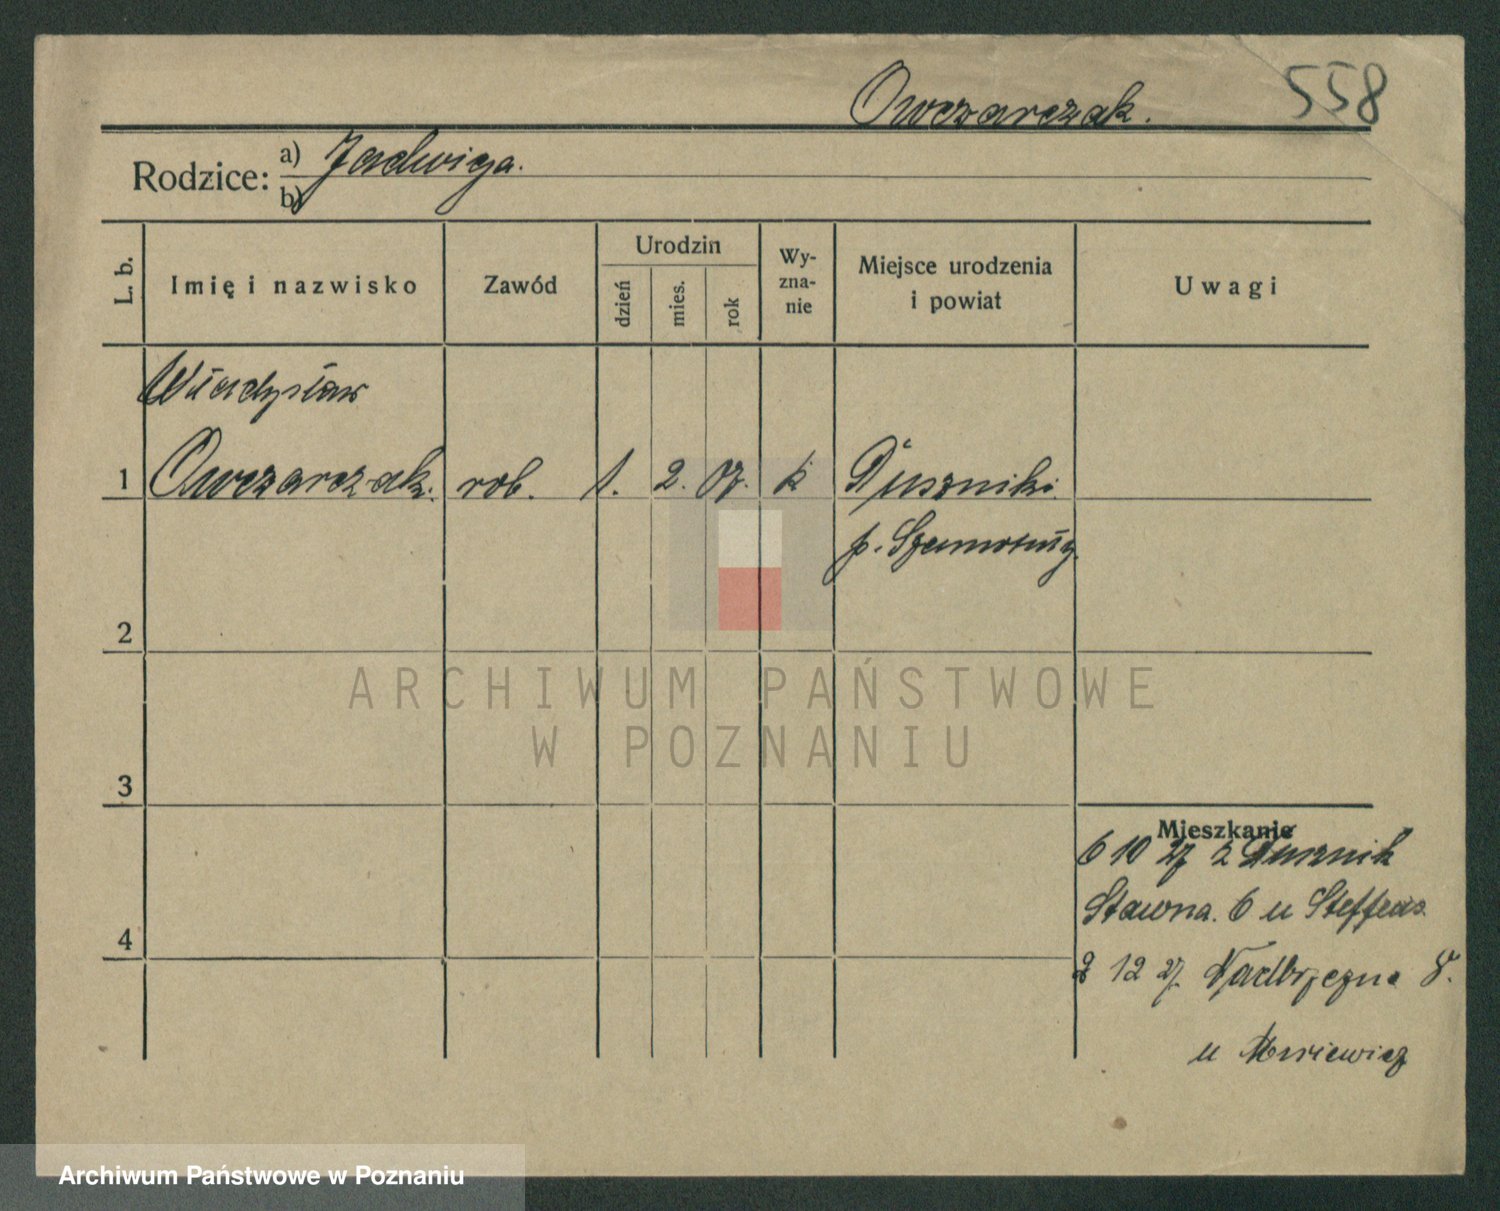 Owczarczak. 558
Rodzice: a) Jadwiga.
b)
L. b.
Imię i nazwisko
Zawód
Urodzin
dzień
mies.
rok
Wy-
zna-
nie
Miejsce urodzenia
i powiat
Uwagi
Władysław
1 Owczarczak. rob. 1. 2. 07. k Duszniki
p. Szamotuły
2
ARCHIWUM PAŃSTWOWE
W POZNANIU
3
Mieszkanie
6 10 27 z Dusznik
Stawna. 6 u Steffens
4
2 12 27 Nadbrzeżna 8.
u
Archiwum Państwowe w Poznaniu